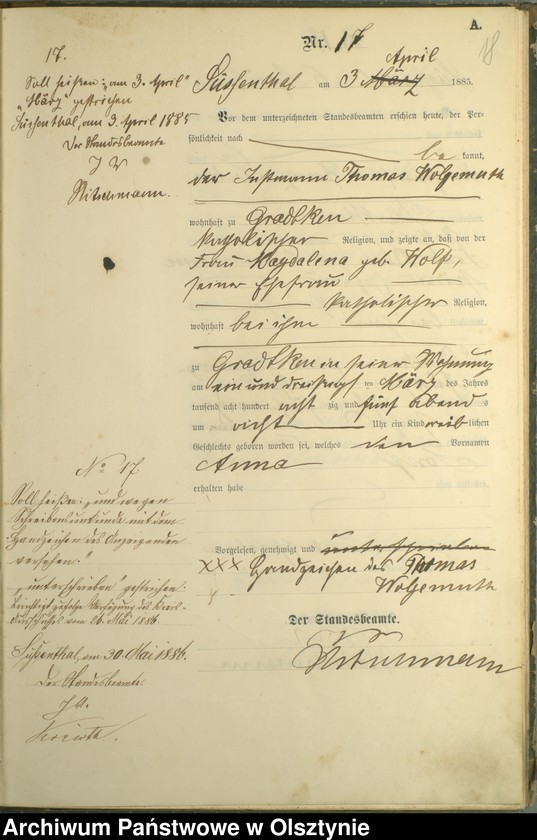 A.
Nr. 17
18
April
Süssenthal am 3 März 1885.
Vor dem unterzeichneten Standesbeamten erschien heute, der Per-
sönlichkeit nach
be kannt,
der Instmann Thomas Wolgemuth
wohnhaft zu Gradtken
katholischer Religion, und zeigte an, daß von der
Frau Magdalena geb. Wolf,
seiner Ehefrau
katholischer Religion,
wohnhaft bei ihm
zu Gradtken in seiner Wohnung
am ein und dreißigsten März des Jahres
tausend acht hundert acht zig und fünf abend s
um acht Uhr ein Kind weib lichen
Geschlechts geboren worden sei, welches den Vornamen
Anna
erhalten habe
Vorgelesen, genehmigt und unterschrieben
XXX Handzeichen des Thomas
Wolgemuth
Der Standesbeamte.
17.
Soll heißen: „am 3. April"
„März" gestrichen
Süssenthal, am 3. April 1885
Der Standesbeamte
J V
No 17.
Soll heißen: „und wegen
Schreibensunkunde mit dem
Handzeichen des Anzeigenden
versehen."
„unterschrieben" gestrichen.
zufolge Verfügung des
vom 26. Mai 1886.
Süssenthal, am 30. Mai 1886.
Der Standesbeamte.
J. V.
Archiwum Państwowe w Olsztynie